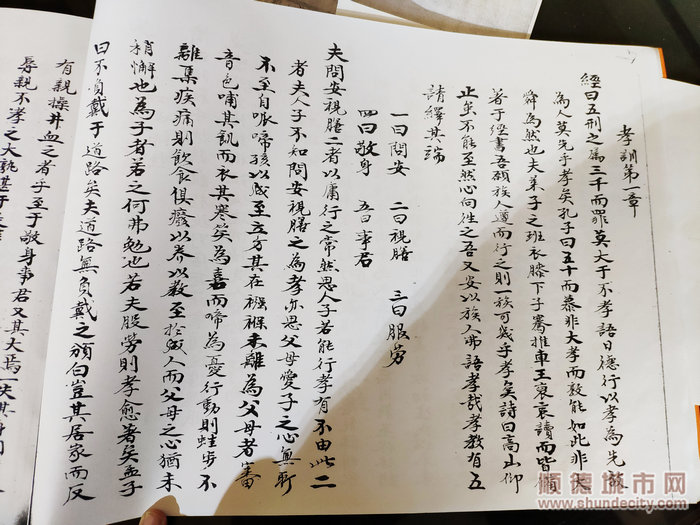 孝訓第一章
經曰五刑之屬三千而罪莫大于不孝語曰德行以孝為先
為人莫先乎孝矣孔子曰五十而慕非大孝而孰能如此非大
舜為然也夫萊子之班衣膝下子騫推車王裒哀讀而皆備
著于經書吾願族人遵而行之則一族可幾乎孝矣詩曰高山仰
止雖不能至然心向往之吾又安以族人弗語孝哉孝教有五
請繹其端
一曰問安 二曰視膳 三曰服勞
四曰敬身 五曰事君
夫問安視膳二者以庸行之常然思人子若能行孝有不由此二
者夫人子不知問安視膳之為孝亦思父母愛子之心無所
不至自呱啼孩以咸至立方其在襁褓未離為父母者審
音色哺其飢而衣其寒笑為嘉而啼為憂行動則蛙步不
離集疾痛則飲食俱廢以养以教至於成人而父母之心猶未
稍懈也為子者若之何弗勉也若夫服勞則孝愈著矣孟子
曰不負戴于道路矣夫道路無負戴之頒白豈其居家而反
有親操井血之者乎至于敬身事君又其大焉一失其身同
辱親不孝之大孰甚于